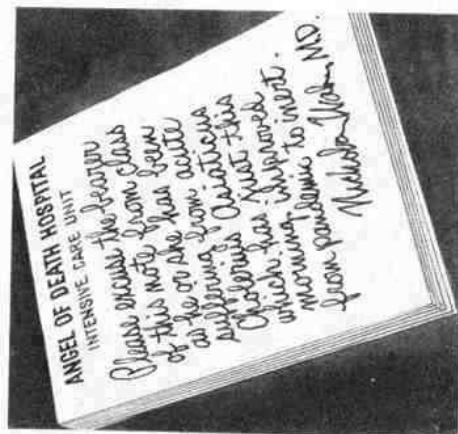 ANGEL OF DEATH HOSPITAL
INTENSIVE CARE UNIT
Please excuse the bearer
of this note from class
as he or she has been
suffering from acute
Asiaticus
which has just this
morning improved
from pandemic to inert.
Nicholas M.D.